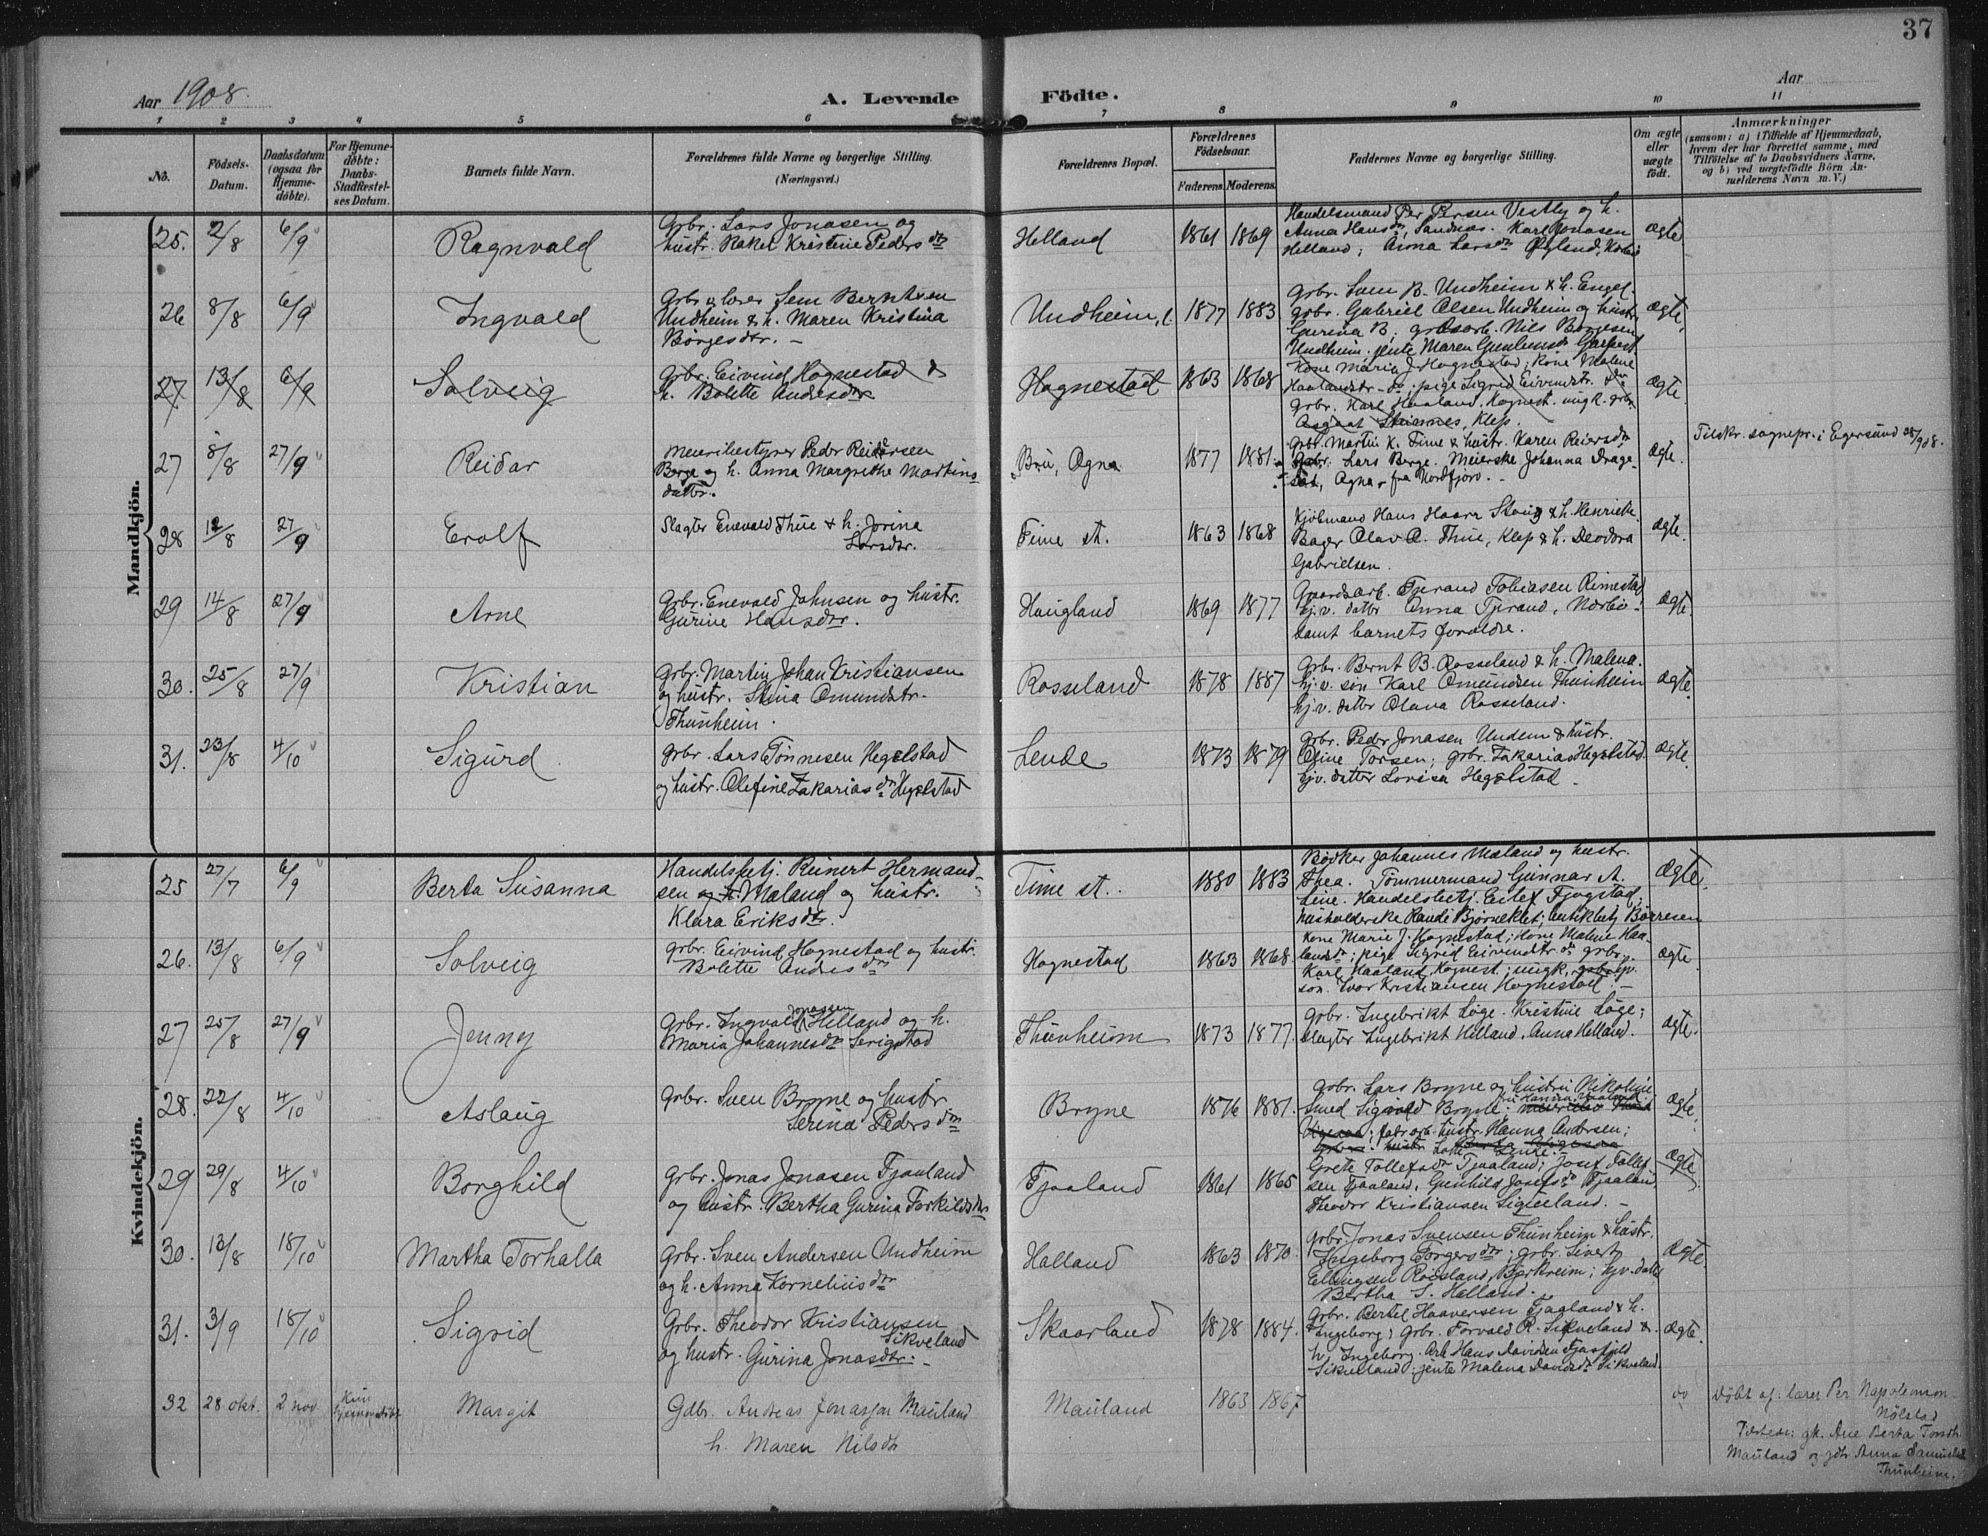 37
Aar 1908.
A. Levende Födte.
Aar
1 2 3 4 5 6 7 8 9 10 11
No.
Födsels-Datum.
Daabsdatum (ogsaa for Hjemme-döbte).
For Hjemme-döbte: Daabs-Stadfæstel-ses Datum.
Barnets fulde Navn.
Forældrenes fulde Navne og borgerlige Stilling. (Næringsvei.)
Forældrenes Bopæl.
Forældrenes Födselsaar.
Faderens. Moderens.
Faddernes Navne og borgerlige Stilling.
Om ægte eller uægte födt.
Anmærkninger
(saasom: a) i Tilfælde af Hjemmedaab, hvem der har forrettet samme, med Tilföielse af to Daabsvidners Navne, og b) ved uægtefödte Börn An-melderens Navn m. V.)
Mandkjön.
25. 2/8 6/9 Ragnvald Grbr. Lars Jonasen og hustr. Rakel Kristine Pedersdtr Helland 1861 1869 Handelsmand Per Persen Vestly og h. Anna Hansdtr, Sandnæs. Karl Jonasen Helland; Anna Larsdtr Øglend, Ægte
26 8/8 6/9 Ingvald Grbr og lærer Sem Berntsen Undheim & h. Maren Kristina Børgesdtr. - Undheim, 1877 1883 Grbr. Sven B. Undheim & h. Engel. grbr. Gabriel Olsen Undheim og hustr. Gurina B; Nils Børgesen Undheim. jente Maren Ægte
27 13/8 6/9 Solveig Grbr. Eivind Hognestad & h. Bolette Andersdtr Hognestad 1863 1868 Kone Maria J. Hognestad; kone Malene pige Sigrid Eivindstr. grbr. Karl Haaland. Hognest. ungk. Klep. Ægte
27 8/8 27/9 Reidar Meieribestyrer Peder Reidarsen Berge og h. Anna Margrethe Martinsdatbr. Bru, Ogna 1877 1881. Grbr. Martin K. Time & hustr. Karen Reiersdtr Lars Berge. Meierske Johanna Drage- Ogna, fra Nordfjord. - Ægte. Tilskr. sognepr. i Egersund 28/9 08.
28 12/8 27/9 Erolf Slagter Enevald Thue & h. Jorina Larsdtr. Time st. 1863 1868 Kjøbmand Hans Haarr Skeie & h. Henriette Bager Olav O. Thue, Klep & h. Deodora Gabrielsen. Ægte.
29 14/8 27/9 Arne Grbr. Enevald Johnsen og hustr. Gurine Hansdtr. Haugland 1869 1877 Gaardsarb. Tjerand Tobiasen Rimestad hj.v. datbr Anna Tjerand, Nærbø. samt barnets forældre. Ægte
30. 25/8 27/9 Kristian Grbr. Martin Johan Kristiansen og hustr. Stina Omundstr. Thunheim. Rosseland 1878 1887 Grbr. Bernt B. Rosseland & h. Malena. hj.v. søn Karl Omundsen Thunheim hj.v. datbr Olava Rosseland. Ægte.
31. 23/8 4/10 Sigurd Grbr. Lars Tønnesen Hegelstad og hustr. Olefine Zakariasdtr Hegelstad Lende 1873 1879 Grbr. Peder Jonasen Undem & hustr. Oline Torsen; grbr. Zakarias Hegelstad. hjv. datter Lovisa Hegelstad. Ægte.
Kvindekjön.
25 27/7 6/9 Berta Susanna Handelsbetj. Reinert Hermandsen Maland og hustr. Klara Eriksdtr. Time st. 1880 1883 Bødker Johannes Maland og hustr. Thea. Tømmermand Gunnar A. Line. Handelsbetj. Eilef Fjogstad; husholderske Randi Bjørneklet; butikbetj. Børresen Ægte.
26. 13/8 6/9 Solveig grbr. Eivind Hognestad og hustr. Bolette Andersdtr Hognestad 1863 1868. Kone Marie J. Hognestad; kone Malene Haalandsdtr; pige Sigrid Eivindstr. grbr. Karl Haaland, Hognest; ungk. hjv. søn. Ivar Kristiansen Hognestad. - Ægte.
27 25/8 27/9 Jenny Grbr. Ingvald Jonasen Helland og h. Maria Johannesdtr Serigstad Thunheim 1873 1877. Grbr. Ingebrikt Løge. Kristine Løge; slagter Ingebrikt Helland. Anna Helland. Ægte.
28. 22/8 4/10 Aslaug Grbr. Sven Bryne og hustr Serina Pedersdtr Bryne 1876 1881. Grbr. Lars Bryne og hustru Nikoline. Smed Sigvald Bryne; hustr. Hanna Andersen; Ægte.
29 29/8 4/10 Borghild Grbr. Jonas Jonasen Tjaaland og hustr. Bertha Gurina Torkildsdtr Tjaaland 1861 1865 Grete Tollefsdtr Tjaaland; Josef Tollefsen Tjaaland. Gunhild Josefsdtr Tjaaland. Theodor Kristiansen Sigveland. - Ægte
30. 13/8 18/10 Martha Torhalla Grbr. Sven Andersen Undheim og h. Anna Korneliusdtr Halland 1863 1870. Grbr. Jonas Svensen Thunheim & hustr. Ingeborg Torgersdtr; grbr. Sivert Ellingsen Røisland, Bjerkreim; hjv. datt. Bertha S. Helland. Ægte.
31. 3/9 18/10 Sigrid Grbr. Theodor Kristiansen Sikveland og hustr. Gurina Jonasdtr. - Skaarland 1878 1884. Grbr. Bertel Haaversen Fjagland & h. Ingeborg; Grbr. Torvald R. Sikveland & h. Ingeborg. Hans Davidsen Sikveland; jente Malena Davidsdtr Sikveland Ægte.
32 28 okt. 2 nov. Kun hjemmedøbt Margit Gdbr. Andreas Jonassen Mauland h. Maren Nilsdtr Mauland 1863 1867 Døbt af: lærer Per Napoleonson Nølstad Testese: gk. Ane Berta Mauland og gdtr Anna Thunheim.